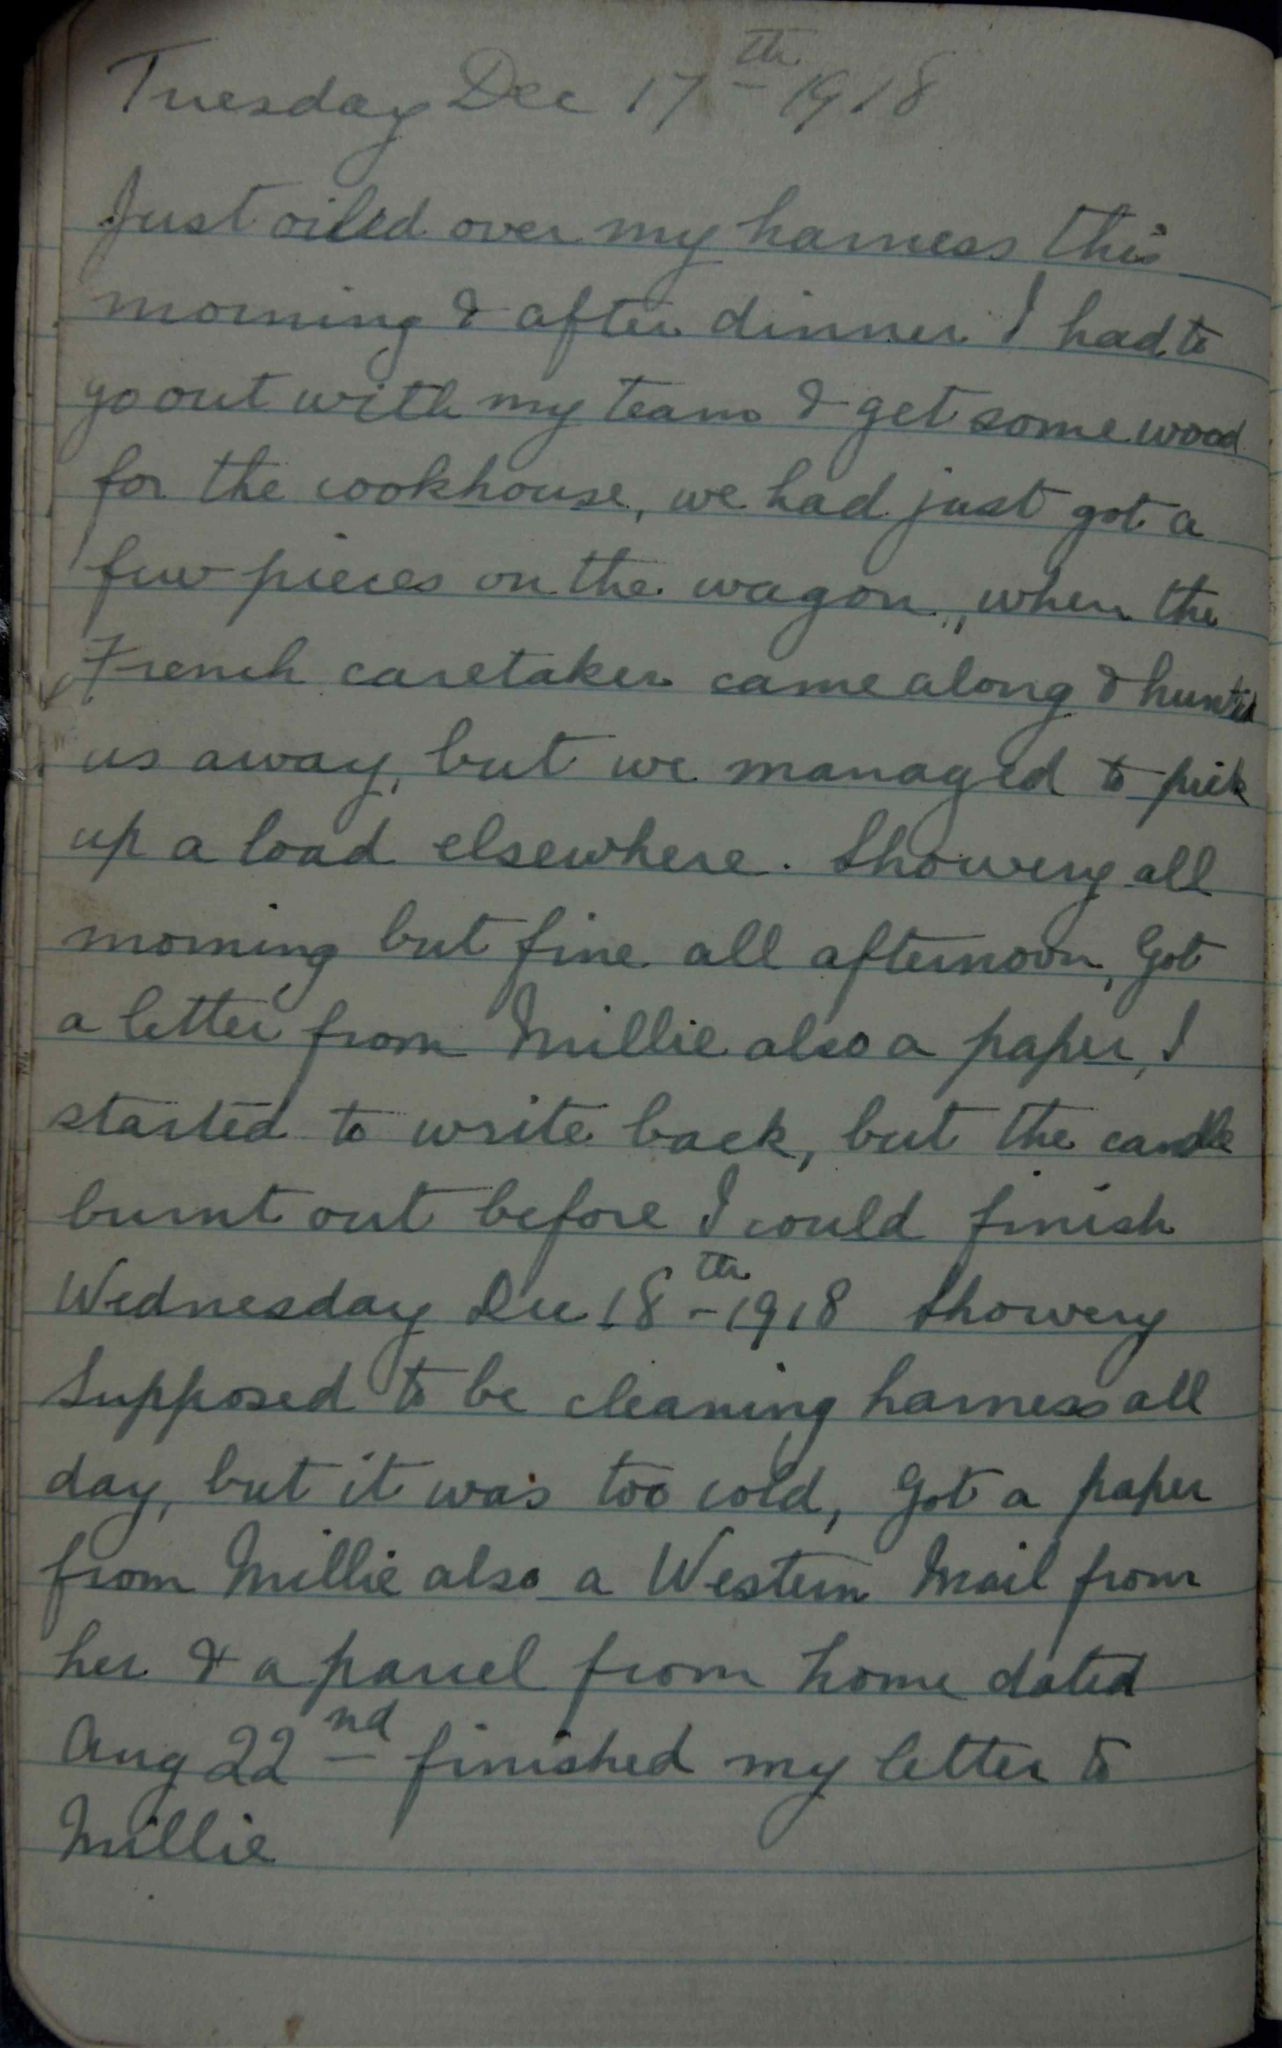 Tuesday Dec 17th 1918
Just oiled over my harness this
morning & after dinner I had to
go out with my team & get some wood
for the cookhouse, we had just got a
few pieces on the wagon,, when the
French caretaker came along & hunted
us away, but we managed to pick
up a load elsewhere. Showery all
morning but fine all afternoon, Got
a letter from Millie also a paper, I
started to write back, but the candle
burnt out before I could finish
Wednesday Dec 18th 1918 Showery
Supposed to be cleaning harness all
day, but it was too cold, Got a paper
from Millie also a Western Mail from
her & a parcel from home dated
Aug 22nd finished my letter to
Millie